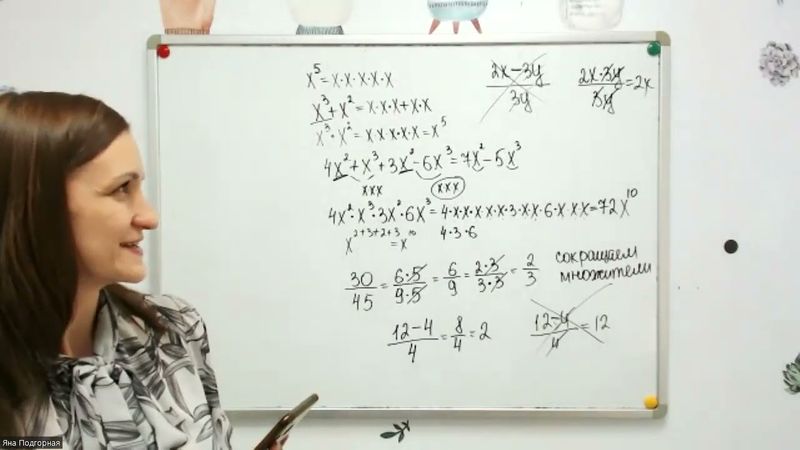 x⁵ = x·x·x·x·x
x³ + x² = x·x·x + x·x
x³ · x² = x·x·x·x·x = x⁵
4x² + x³ + 3x² - 6x³ = 7x² - 5x³
xxx xxx
4x²·x³·3x²·6x³ = 4·x·x·x·x·x·3·x·x·6·x·x·x = 72x¹⁰
x²⁺³⁺²⁺³ = x¹⁰ 4·3·6
30/45 = 6·5/9·5 = 6/9 = 2·3/3·3 = 2/3
сокращаем
множители
12-4/4 = 8/4 = 2
12-4/4 = 12
2x-3y/3y
2x·3y/3y = 2x
Яна Подгорная